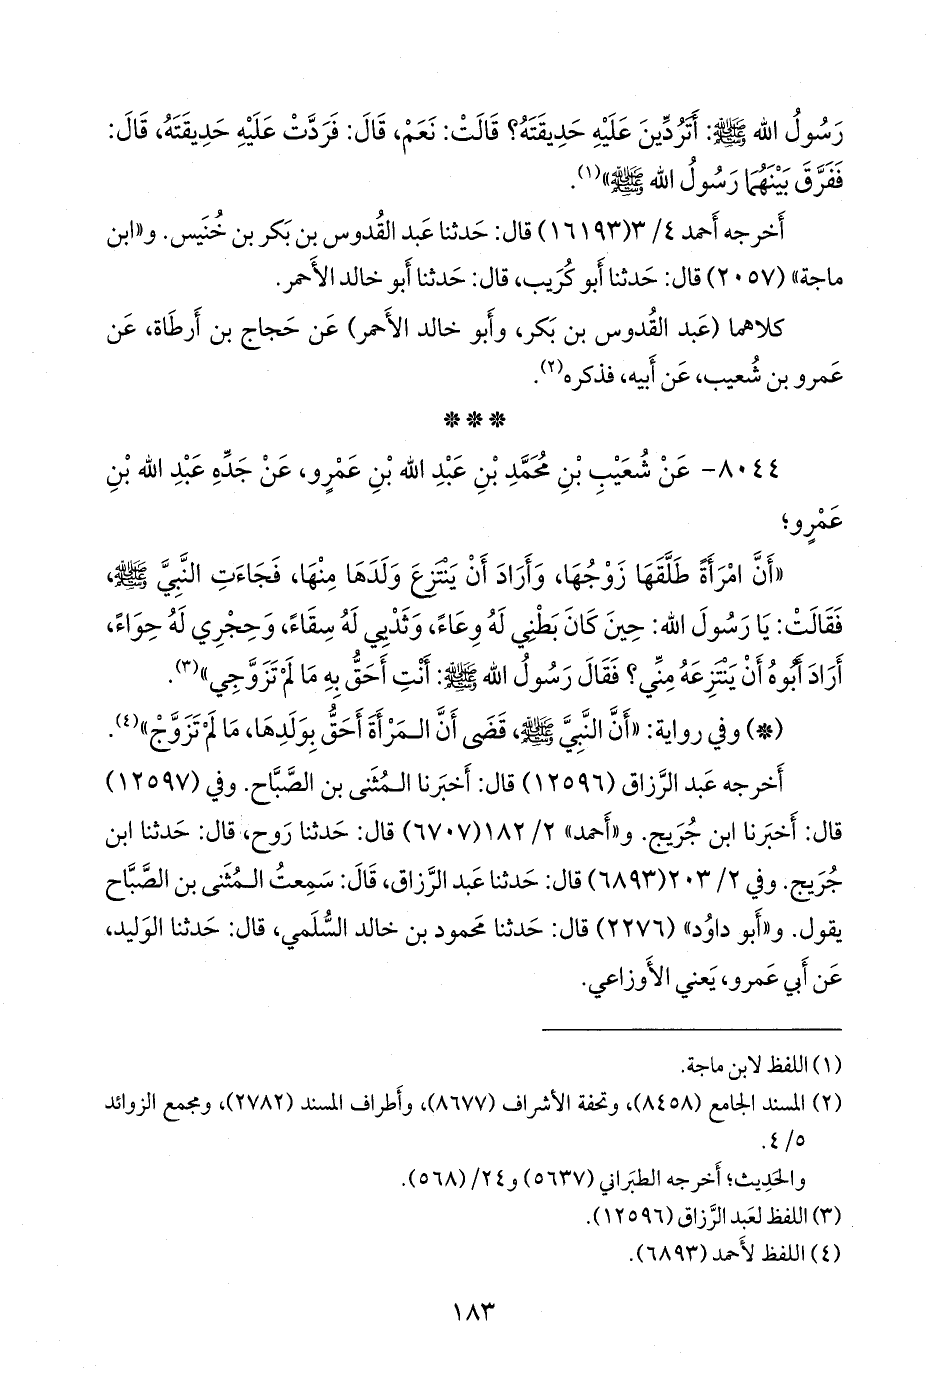 رَسُولُ الله ﷺ: أَتَرُدِّينَ عَلَيْهِ حَدِيقَتَهُ؟ قَالَتْ: نَعَمْ، قَالَ: فَرَدَّتْ عَلَيْهِ حَدِيقَتَهُ، قَالَ:
فَفَرَّقَ بَيْنَهُمَا رَسُولُ الله ﷺ»(١).
أَخرجه أَحمد ٤/ ٣(١٦١٩٣) قال: حَدثنا عَبد القُدوس بن بَكر بن خُنَيس. و«ابن
ماجة» (٢٠٥٧) قال: حَدثنا أَبو كُرَيب، قال: حَدثنا أَبو خالد الأَحمر.
كلاهما (عَبد القُدوس بن بَكر، وأَبو خالد الأَحمر) عَن حَجاج بن أَرطَاة، عَن
عَمرو بن شُعيب، عَن أَبيه، فذكره(٢).
***
٨٠٤٤- عَنْ شُعَيْبِ بْنِ مُحَمَّدِ بْنِ عَبْدِ الله بْنِ عَمْرٍو، عَنْ جَدِّهِ عَبْدِ الله بْنِ
عَمْرٍو؛
«أَنَّ امْرَأَةً طَلَّقَهَا زَوْجُهَا، وَأَرَادَ أَنْ يَنْتَزِعَ وَلَدَهَا مِنْهَا، فَجَاءَتِ النَّبِيَّ ﷺ،
فَقَالَتْ: يَا رَسُولَ الله: حِينَ كَانَ بَطْنِي لَهُ وِعَاءً، وَثَدْيِي لَهُ سِقَاءً، وَحِجْرِي لَهُ حِوَاءً،
أَرَادَ أَبُوهُ أَنْ يَنْتَزِعَهُ مِنِّي؟ فَقَالَ رَسُولُ الله ﷺ: أَنْتِ أَحَقُّ بِهِ مَا لَمْ تَزَوَّجِي»(٣).
(*) وفي رواية: «أَنَّ النَّبِيَّ ﷺ، قَضَى أَنَّ الـمَرْأَةَ أَحَقُّ بِوَلَدِهَا، مَا لَمْ تَزَوَّجْ»(٤).
أَخرجه عَبد الرَّزاق (١٢٥٩٦) قال: أَخبَرنا الـمُثَنى بن الصَّبَّاح. وفي (١٢٥٩٧)
قال: أَخبَرنا ابن جُرَيج. و«أَحمد» ٢/ ١٨٢(٦٧٠٧) قال: حَدثنا رَوح، قال: حَدثنا ابن
جُرَيج. وفي ٢/ ٢٠٣(٦٨٩٣) قال: حَدثنا عَبد الرَّزاق، قَالَ: سَمِعتُ الـمُثنى بن الصَّبَّاح
يقول. و«أَبو داوُد» (٢٢٧٦) قال: حَدثنا مَحمود بن خالد السُّلَمي، قال: حَدثنا الوَليد،
عَن أَبي عَمرو، يَعني الأَوزاعي.
(١) اللفظ لابن ماجة.
(٢) المسند الجامع (٨٤٥٨)، وتحفة الأشراف (٨٦٧٧)، وأَطراف المسند (٢٧٨٢)، ومجمع الزوائد
٥/ ٤.
والحَدِيث؛ أَخرجه الطبَراني (٥٦٣٧) و٢٤/ (٥٦٨).
(٣) اللفظ لعَبد الرَّزاق (١٢٥٩٦).
(٤) اللفظ لأَحمد (٦٨٩٣).
١٨٣